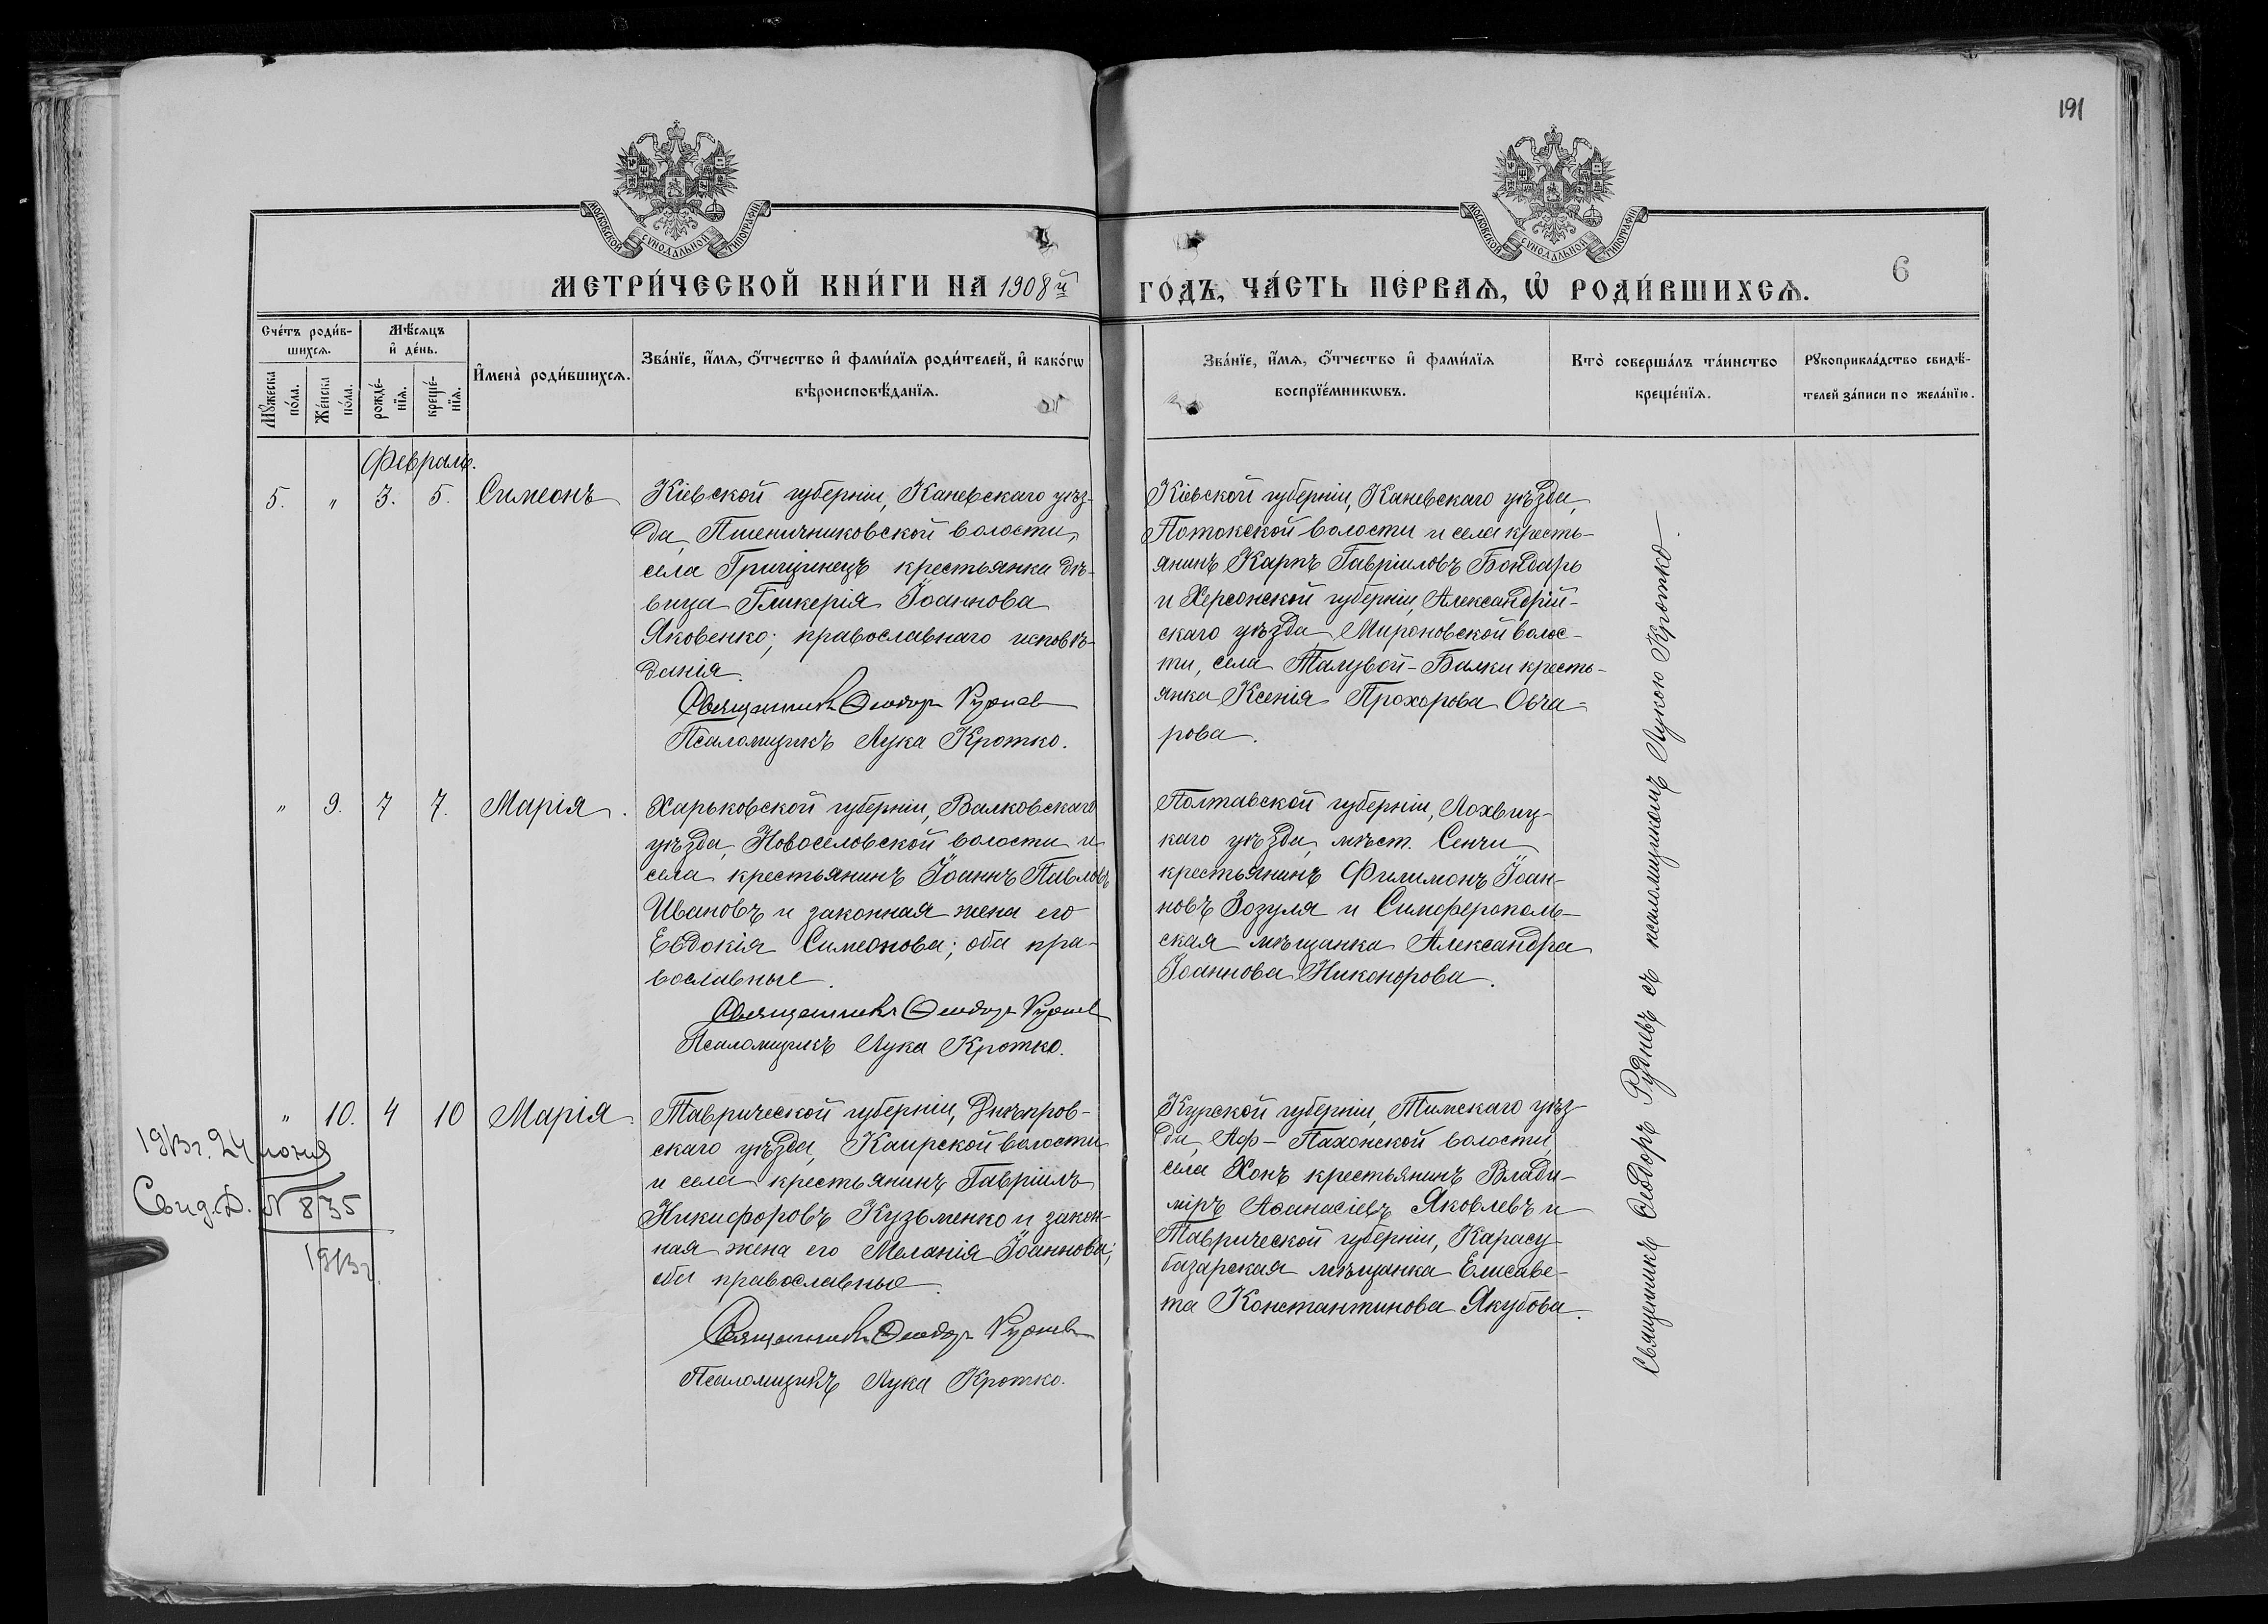 191
МОСКОВСКОЙ СѴНОДАЛЬНОЙ ТИПОГРАФІИ
МОСКОВСКОЙ СѴНОДАЛЬНОЙ ТИПОГРАФІИ
МЕТРИ́ЧЕСКОЙ КНИ́ГИ НА 1908й
ГО́ДЪ, ЧА́СТЬ ПЕ́РВАѦ, Ѡ҆ РОДИ́ВШИХСѦ.
6
Сче́тъ роди́в-
шихсѧ.
Мꙋ́жеска
по́ла.
Же́нска
по́ла.
Мѣ́сѧцъ
и҆ де́нь.
рожде́-
нїѧ.
креще́-
нїѧ.
И҆мена̀ роди́вшихсѧ.
Зва́нїе, и҆́мѧ, ѻ҆́тчество и҆ фами́лїѧ роди́телей, и҆ како́гѡ
вѣроисповѣ́данїѧ.
Зва́нїе, и҆́мѧ, ѻ҆́тчество и҆ фами́лїѧ
воспрїе́мникѡвъ.
Кто̀ соверша́лъ та́инство
креще́нїѧ.
Рꙋкоприкла́дство свидѣ́-
телей за́писи по жела́нїю.
Февраль.
5. " 3. 5. Симеонъ
Кіевской губерніи, Каневскаго уѣз-
да, Пшеничниковской волости,
села Грищинецъ крестьянка дѣ-
вица Гликерія Іоаннова
Яковенко; православнаго исповѣ-
данія.
Священникъ Ѳеодоръ Руднев
Псаломщикъ Лука Кротко.
Кіевской губерніи, Каневскаго уѣзда,
Потокской волости и села кресть-
янинъ Карпъ Гавріиловъ Бондарь
и Херсонской губерніи, Александрій-
скаго уѣзда Мироновской волос-
ти, села Талувой-Балки кресть-
янка Ксенія Прохорова Овча-
рова.
" 9. 7 7. Марія.
Харьковской губерніи, Валковскаго
уѣзда, Новоселовской волости и
села крестьянинъ Іоаннъ Павловъ
Ивановъ и законная жена его
Евдокія Симеонова; оба пра-
вославные.
Священникъ Ѳеодоръ Руднев
Псаломщикъ Лука Кротко.
Полтавской губерніи, Лохвиц-
каго уѣзда, мѣст. Сенчи
крестьянинъ Филимонъ Іоан-
новъ Зозуля и Симферополь-
ская мѣщанка Александра
Іоаннова Никонорова.
" 10. 4 10 Марія.
Таврической губерніи, Днѣпров-
скаго уѣзда, Каирской волости
и села крестьянинъ Гавріилъ
Никифоровъ Кузьменко и закон-
ная жена его Меланія Іоаннова;
оба православные.
Священникъ Ѳеодоръ Руднев
Псаломщикъ Лука Кротко.
Курской губерніи, Тимскаго уѣз-
да, Аф-Пахонской волости,
села Хонъ крестьянинъ Влади-
міръ Аѳанасіевъ Яковлевъ и
Таврической губерніи, Карасу-
базарская мѣщанка Елисаве-
та Константинова Якубова.
1913г. 24 іюня
Свид. Д. N 835
1913г.
Священникъ Ѳеодоръ Рудневъ съ псаломщикомъ Лукою Кротко.